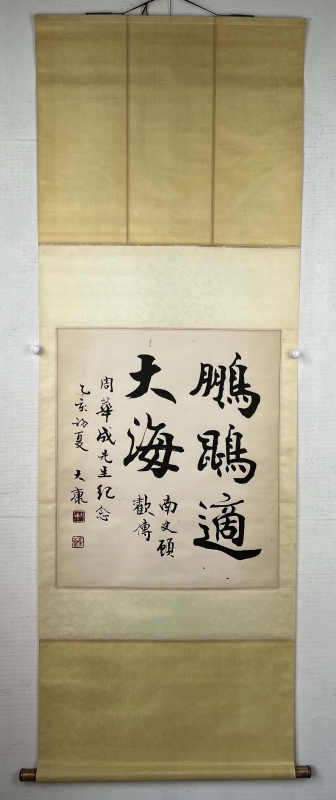 鵬鵾適
大海
南史顧
歡傳
周華成先生紀念
乙亥初夏 大康